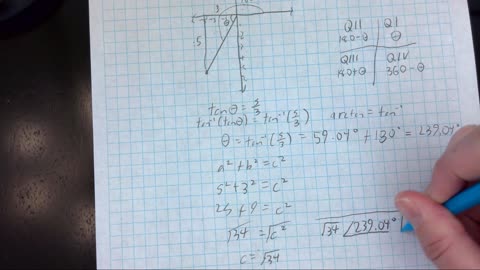 3
5
θ
QII | QI
180-θ | θ
QIII | QIV
180+θ | 360-θ
tanθ = 5/3
tan⁻¹(tanθ) = tan⁻¹(5/3) arctan = tan⁻¹
θ = tan⁻¹(5/3) = 59.04° + 180° = 239.04°
a² + b² = c²
5² + 3² = c²
25 + 9 = c²
√34 = √c²
c = √34
√34 ∠239.04°